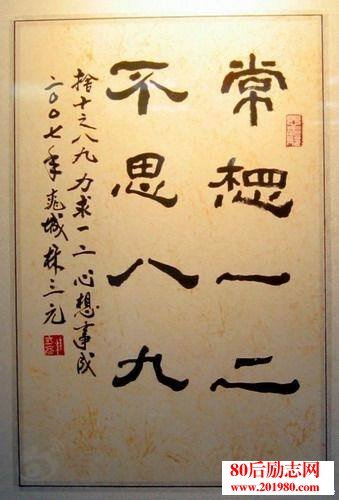 常想一二
不思八九
捨十之八九力求一二心想事成
二〇〇七年城林三元
80后励志网
www.201980.com